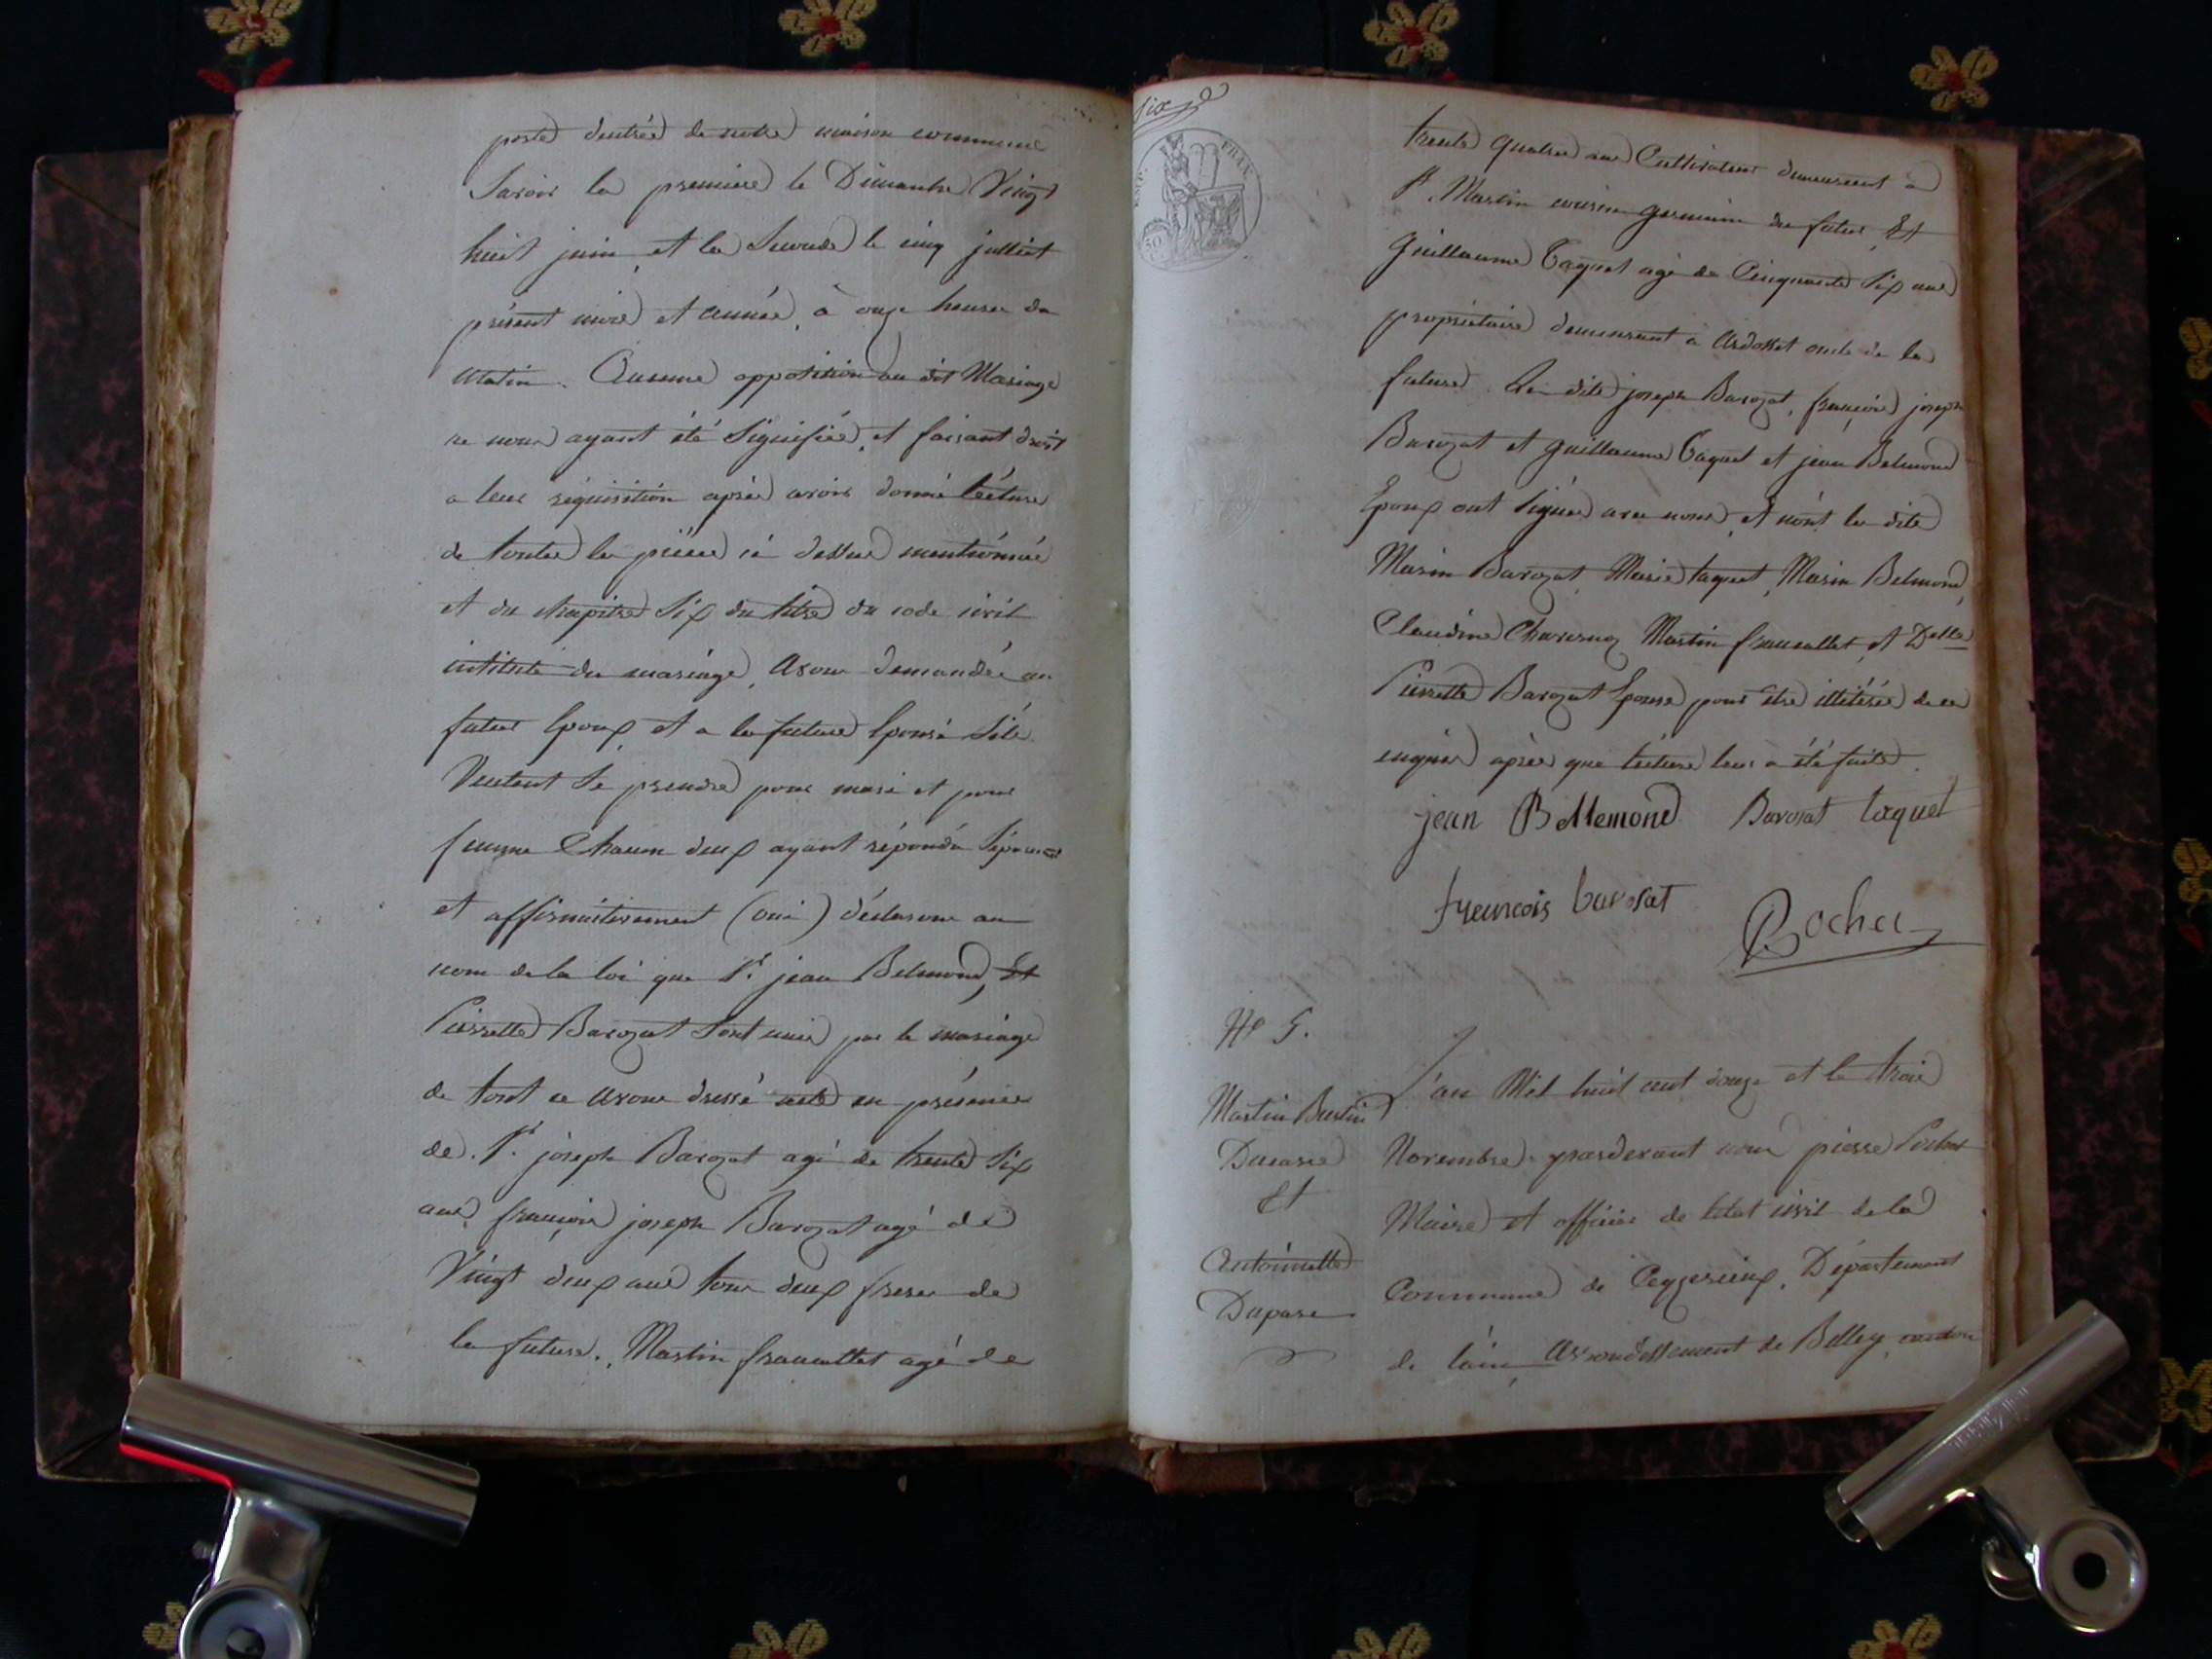 porte dentrée de notre maison commune
Savoir la premiere le Dimanche Vingt
huit juin et la Seconde le cinq julliet
présent mois et année, à onze heures du
Matin. Aucune opposition au dit Mariage
ne nous ayant été Signifiée, et faisant droit
a leur réquisition après avoir donné lécture
de toutes les pièces ci dessus mentionnée
et du chapitre Six du titre du code civil
intitulé du mariage, avons demandée au
futur Epoux et a la future Epouse Sils
Veulent Se prendre pour mari et pour
femme Chacun deux ayant répondu
et affirmativement (oui) déclarons au
nom de la loi que Sr. jean Belmond, Et
Pierrette Barozat Sont unis par le mariage
de tout ce avons dressé acte en présence
de Sr. joseph Barozat agé de trente Six
ans, françois joseph Barozat agé de
Vingt deux ans tous deux freres de
la future. Martin agé de
Six
EMP. FRAN.
50
trente quatre ans Cultivateur demeurent à
St. Martin cousin germain du futur Et
guillaume Taquet agé de Cinquante Six ans
propriétaire demeurent à Ardosset oncle de la
future. Les dits joseph Barozat, françois joseph
Barozat et guillaume Taquet et jean Belmond
Epoux ont Signés avec nous, et nont les dits
Marin Barozat, Marie taquet, Marin Belmond,
Claudine Martin et Delle
Pierrette Barozat Epouse pour être illitérés de ce
enquis après que lécture leur à été faite.
jean Bellemond Barosat taquet
francois barosat
Rochet
No 5.
Martin
Et
Antoinette
Duparc
L'an Mil huit cent douze et le trois
Novembre pardevant nous pierre
Maire et officier de létat civil de la
Commune de Ceyzerieux, Département
de lain, Arrondissement de Belley, canton